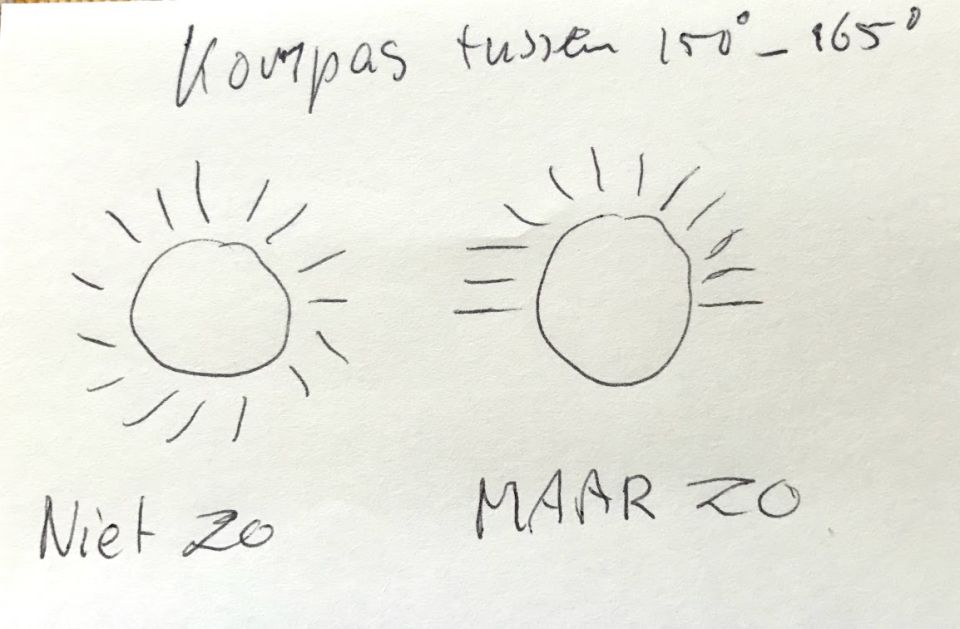 Kompas tussen 150° - 165°
Niet zo
MAAR ZO